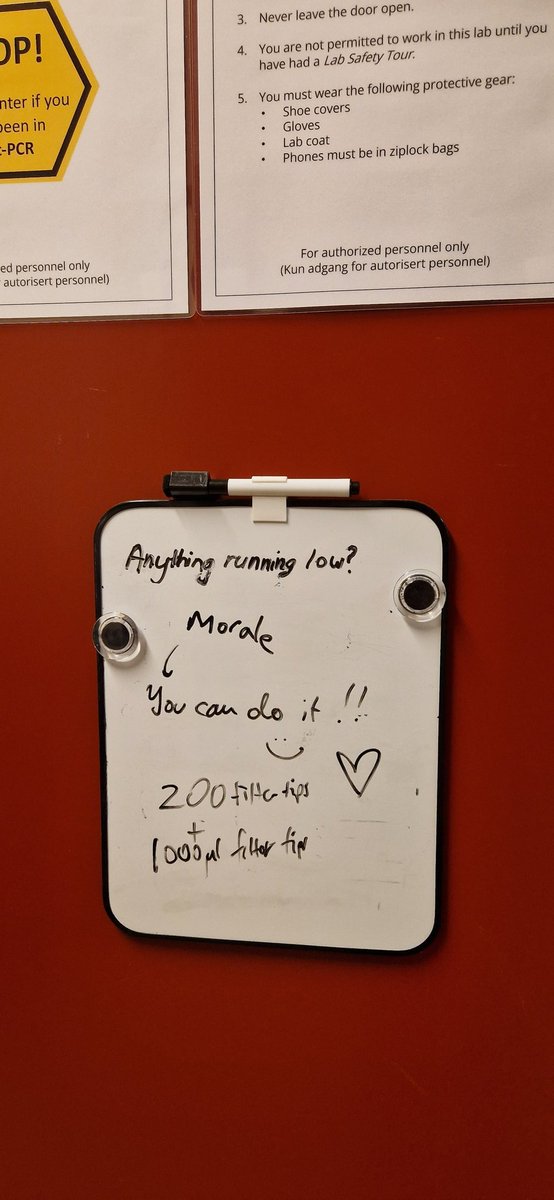 OP!
nter if you
been in
-PCR
ed personnel only
autorisert personnel)
3. Never leave the door open.
4. You are not permitted to work in this lab until you
have had a Lab Safety Tour.
5. You must wear the following protective gear:
• Shoe covers
• Gloves
• Lab coat
• Phones must be in ziplock bags
For authorized personnel only
(Kun adgang for autorisert personnel)
Anything running low?
Morale
You can do it !!
200 filter tips
+
1000µl filter tips